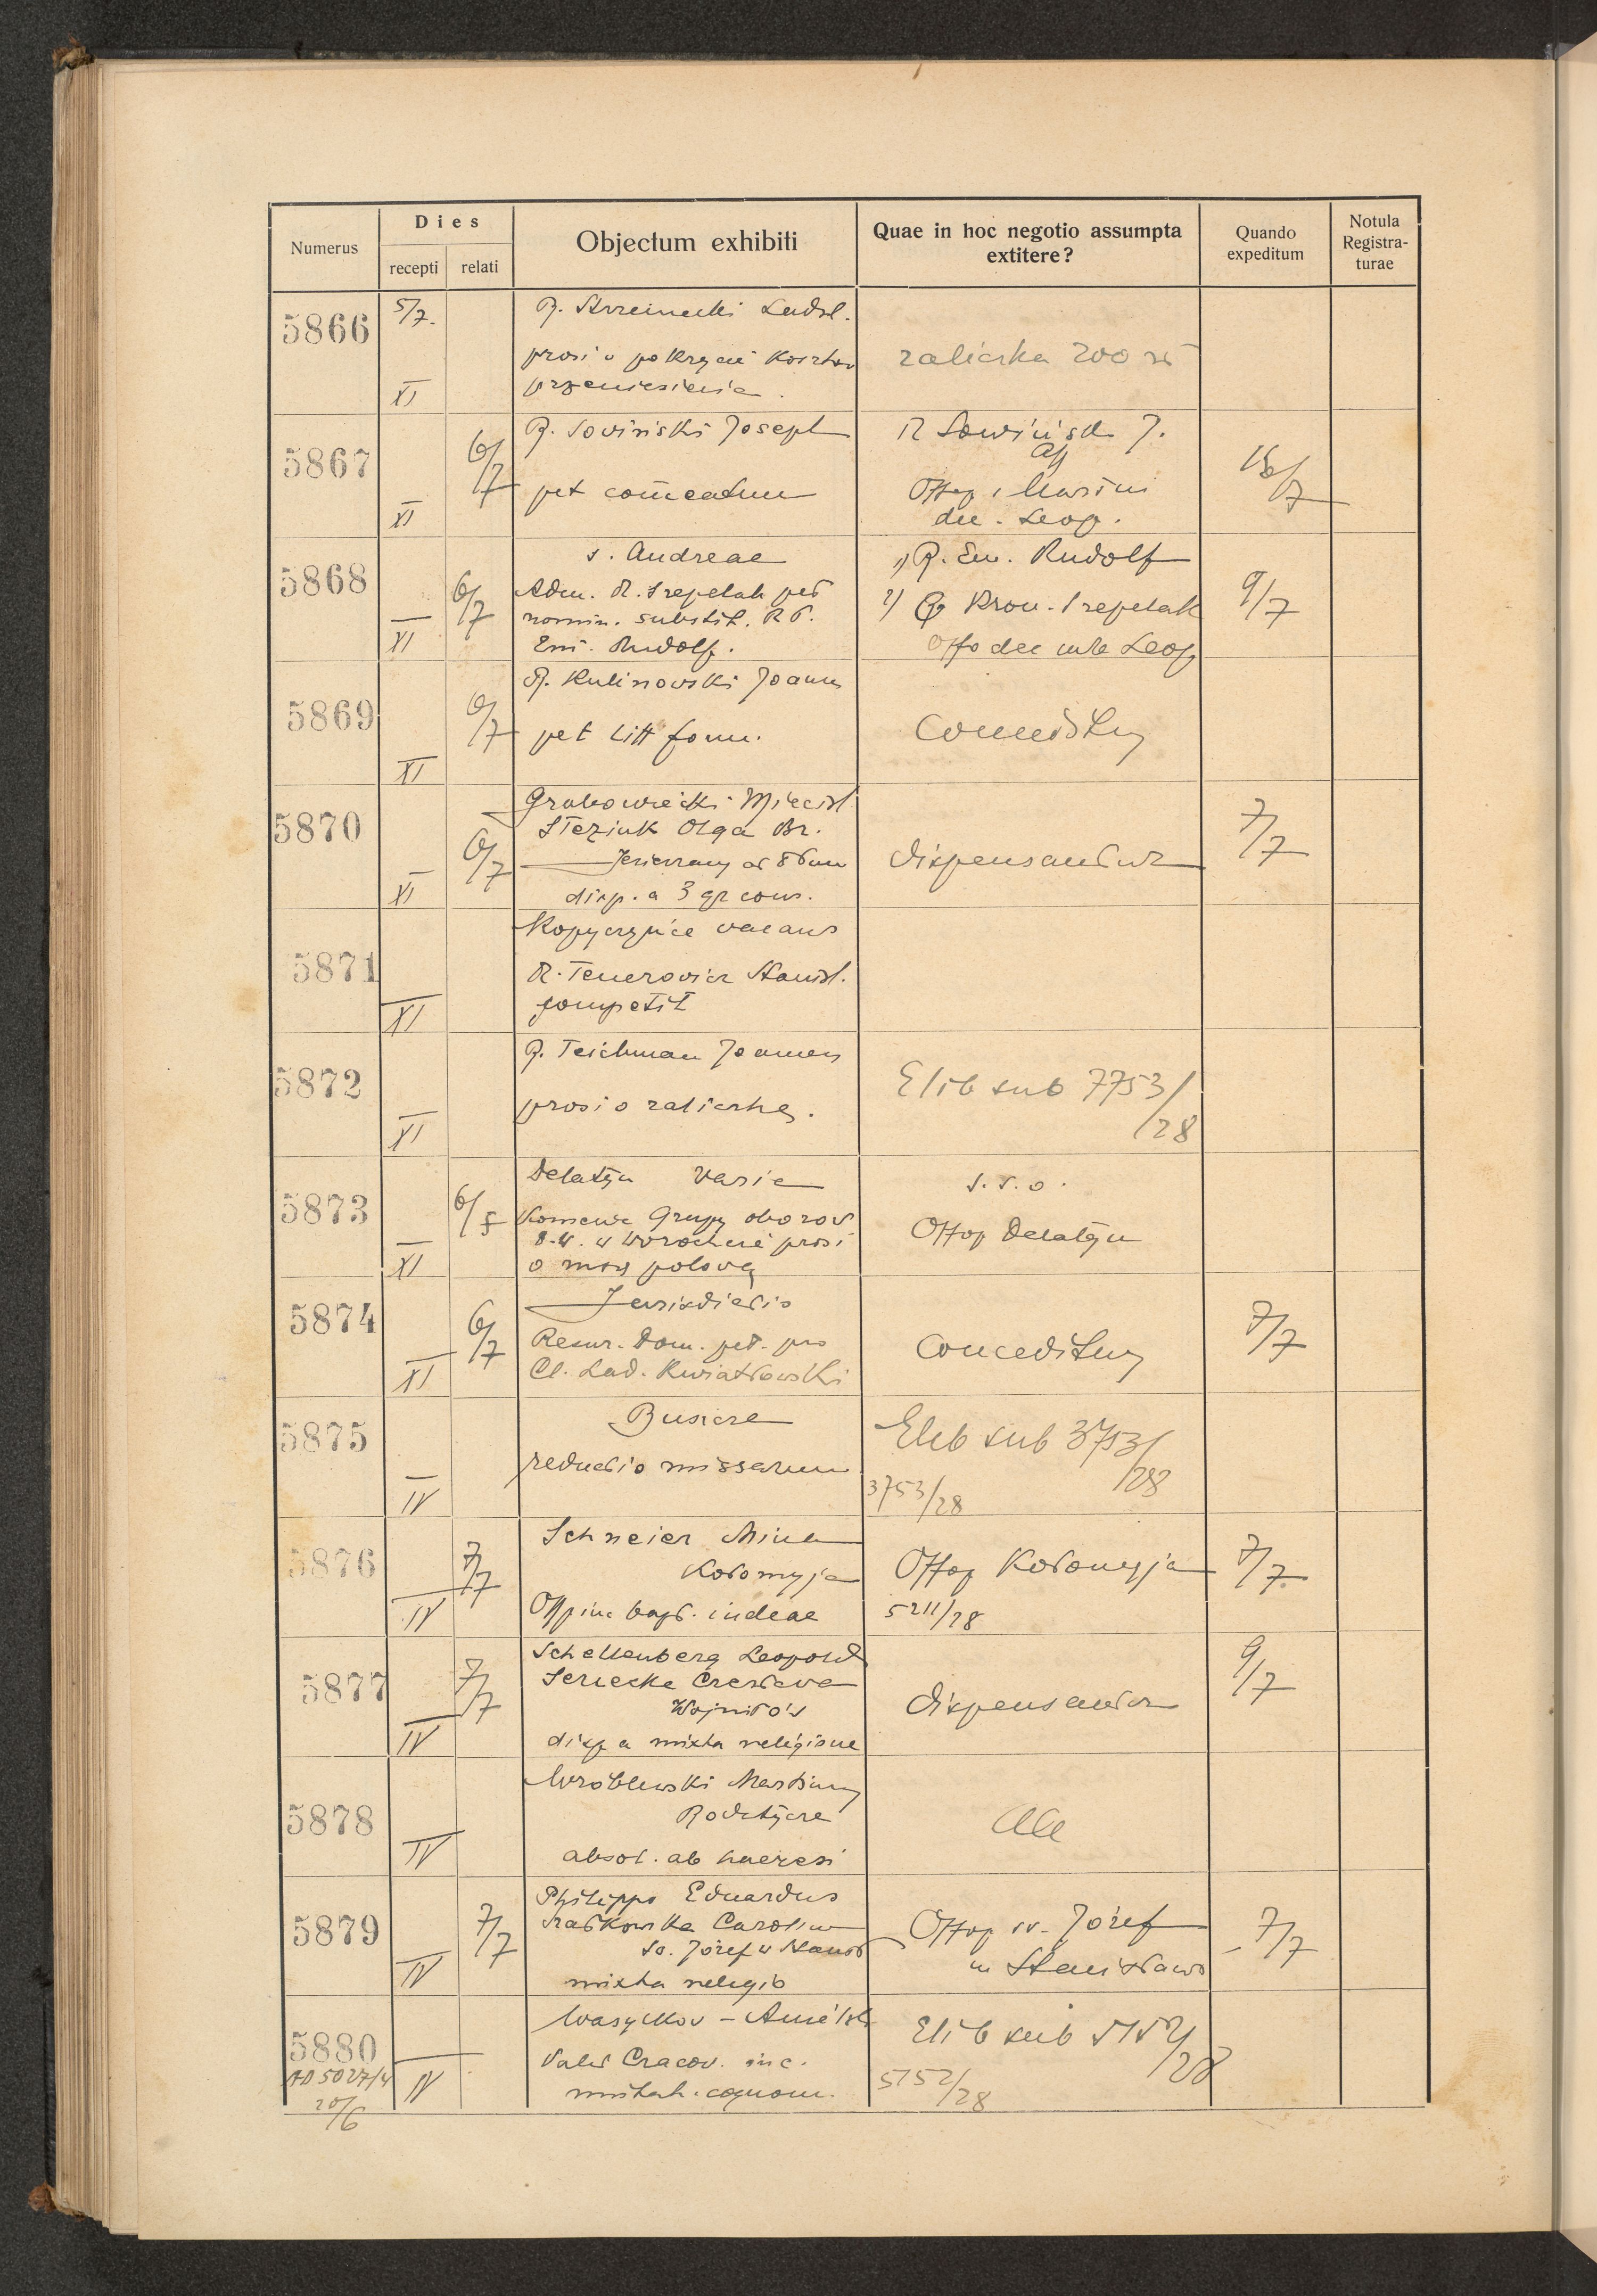 Numerus
Dies
recepti relati
Objectum exhibiti
Quae in hoc negotio assumpta
extitere?
Quando
expeditum
Notula
Registra-
turae
5866
5/7.
XI
R. Ladsl.
prosi o pokrycie kosztów
przeniesienia.
zaliczka 200 zł
5867
XI
6/7
R. Sowiński Joseph
pet com̄eatum
R Sowiński J.
Offop.
dec. Leop.
18/7
5868
XI
6/7
s. Andreae
Adm. R. Trepelak pet
nomin. substit. R P.
Em. Rudolf.
1) R. Em. Rudolf
2) Kron. Trepelak
Offo dec Leop
9/7
5869
XI
6/7
R. Kulinowski Joann
pet litt form.
Conceditur
5870
XI
6/7
Grabowiecki Miecisl
Olga Br.
Jezierzany
disp. a 3 gr cons.
dispensantur
7/7
5871
XI
Kopyczyńce vacans
R. Tenerowicz Stanisl.
competit
5872
XI
R. Teichman Joannes
prosi o zaliczkę.
Elib sub 7753/
/28
5873
XI
6/7
Delatyn Varia
Komenda Grupy obozów
w Worochcie prosi
o mszę polową
s. v. o.
Offop Delatyn
5874
XI
6/7
Jurisdictio
Resur. Dom. pet. pro
Cl. Lad. Kwiatkowski
Conceditur
7/7
5875
IV
Buszcze
reductio missarum
Elib sub 3753/
/28
3753/28
5876
IV
7/7
Schneier Mina
Kołomyja
bapt. iudeae
Offop Kołomyja
5211/28
7/7
5877
IV
7/7
Schellenberg Leopold
Czesława
Wojniłów
disp a mixta religione
dispensantur
9/7
5878
IV
Wróblewski Martinus
Rodatycze
absol. ab haeresi
5879
IV
7/7
Philipps Eduardus
Carolina
św. Józef w Stanisł
mixta religio
Offop św. Józef
w Stanisławo
7/7
5880
AD 5027/4
20/6
IV
Wasylkow –
Cracov. inc.
cognom.
Elib sub 5152/
/28
5152/28